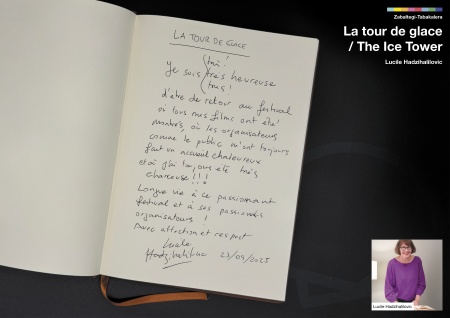 Zabaltegi-Tabakalera
La tour de glace
/ The Ice Tower
Lucile Hadzihalilovic
LA TOUR DE GLACE
très !
Je suis très heureuse
très !
d'être de retour au festival
où tous mes films ont été
montrés, où les organisateurs
comme le public m'ont toujours
fait un accueil chaleureux
et où j'ai toujours été très
chanceuse !!!
Longue vie à ce passionnant
festival et à ses passionnés
organisateurs !
Avec affection et respect
Lucile
Hadzihalilovic 23/09/2025
Lucile Hadzihalilovic